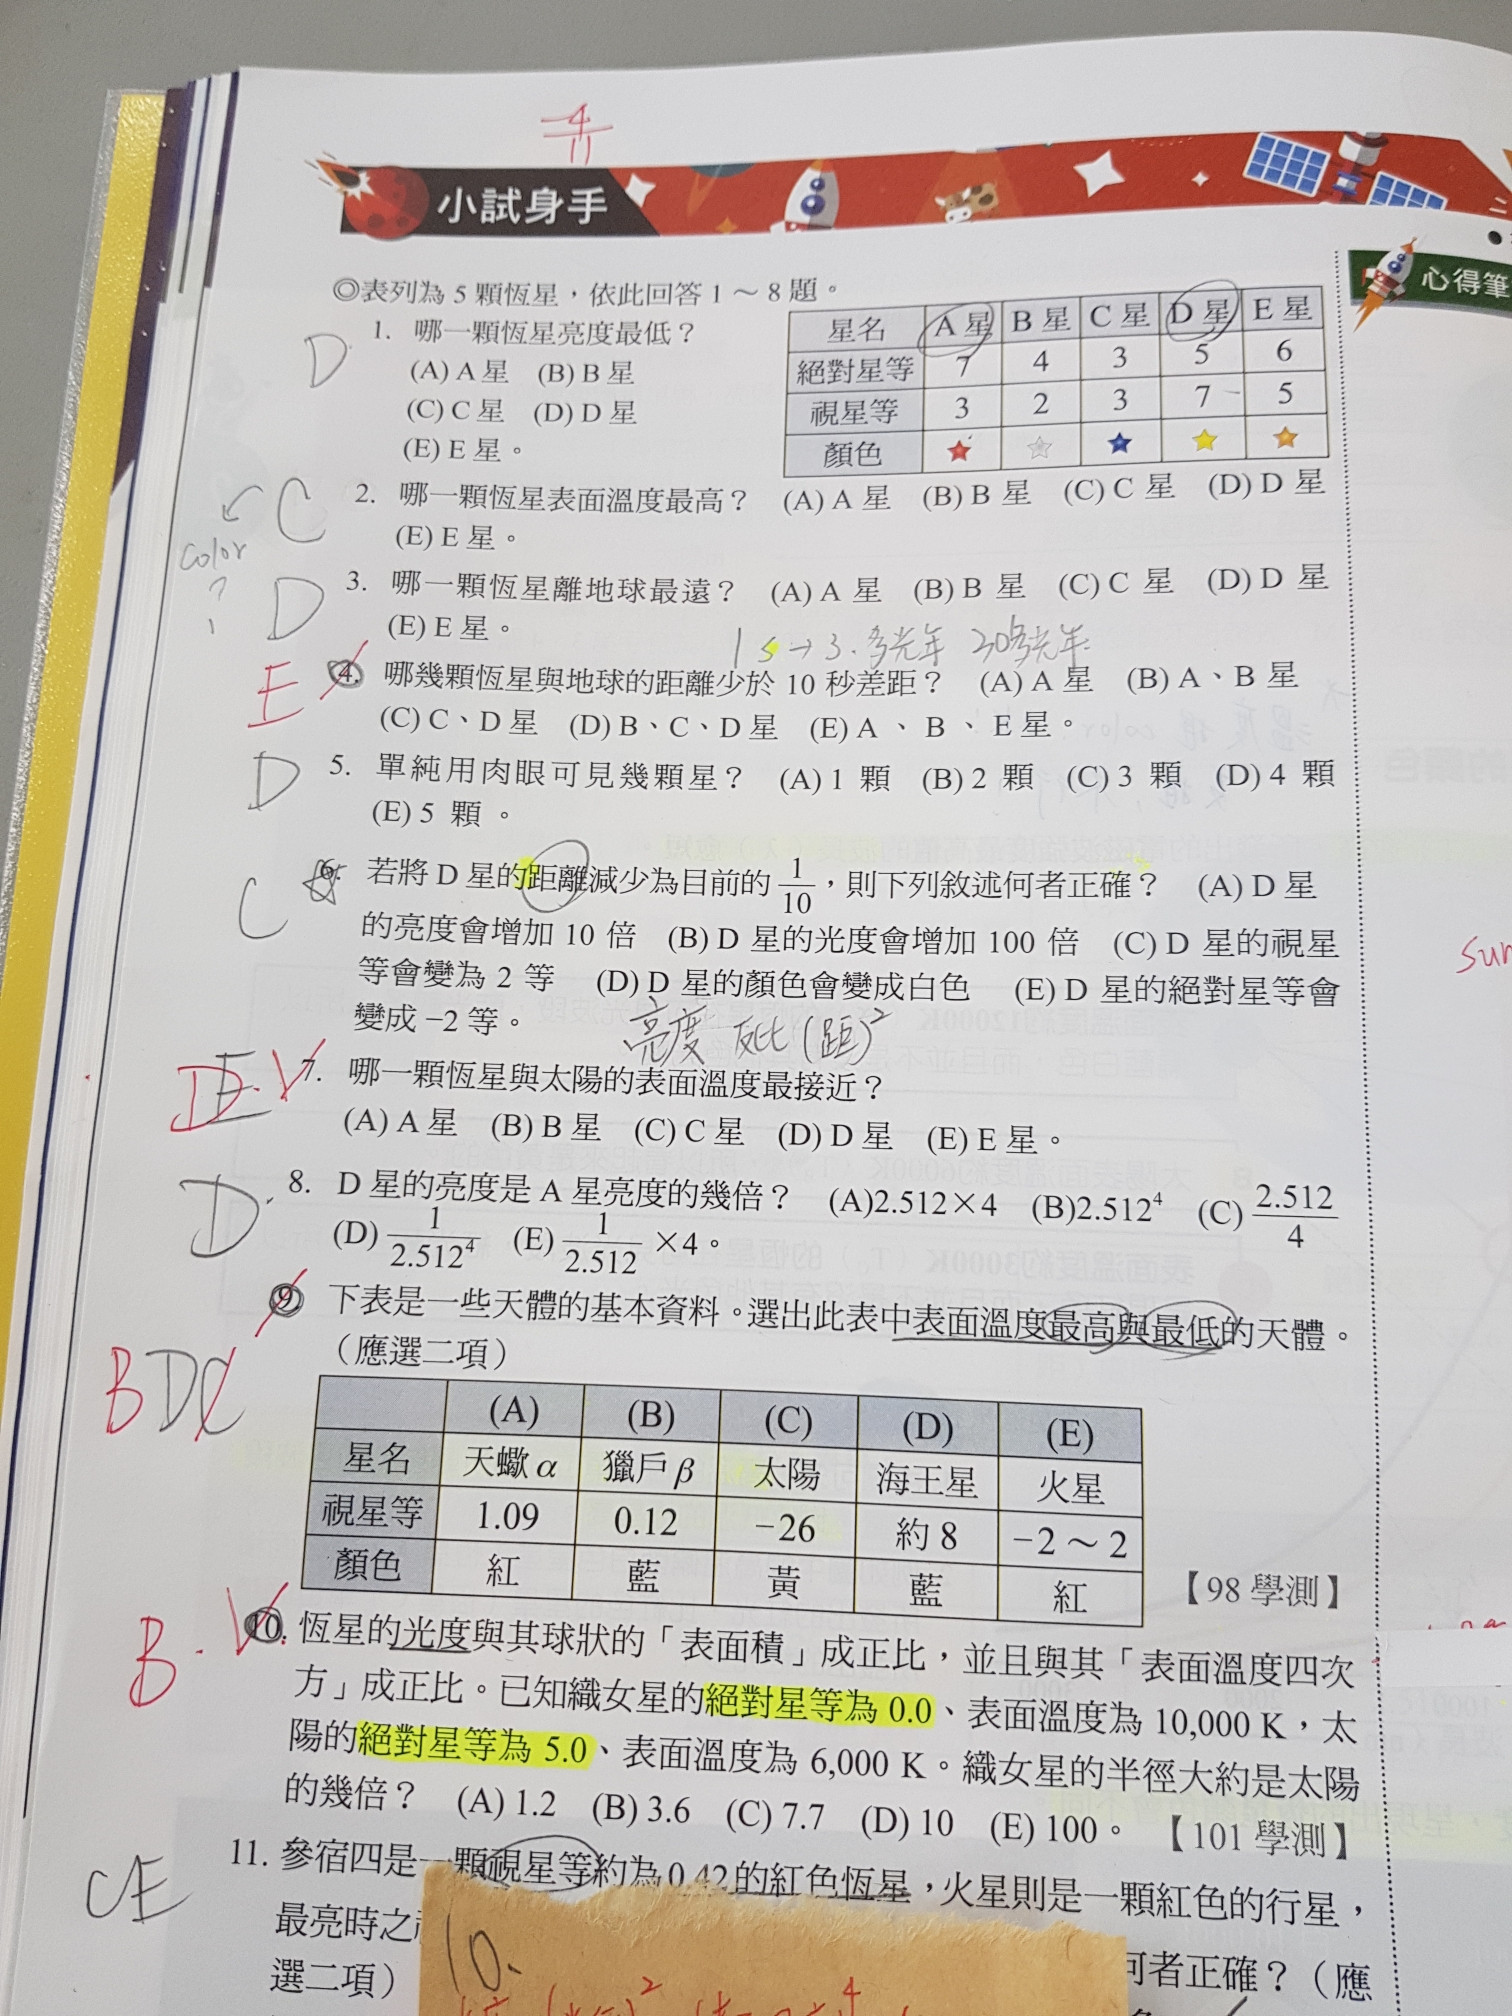 4
11
小試身手
心得筆
◎表列為 5 顆恆星，依此回答 1～8 題。
星名 A 星 B 星 C 星 D 星 E 星
絕對星等 7 4 3 5 6
視星等 3 2 3 7 5
顏色
D
1. 哪一顆恆星亮度最低？
(A) A 星 (B) B 星
(C) C 星 (D) D 星
(E) E 星。
C
color
?
2. 哪一顆恆星表面溫度最高？ (A) A 星 (B) B 星 (C) C 星 (D) D 星
(E) E 星。
D
3. 哪一顆恆星離地球最遠？ (A) A 星 (B) B 星 (C) C 星 (D) D 星
(E) E 星。
1 s → 3. 多光年 30多光年
E
4. 哪幾顆恆星與地球的距離少於 10 秒差距？ (A) A 星 (B) A、B 星
(C) C、D 星 (D) B、C、D 星 (E) A 、 B 、 E 星。
D
5. 單純用肉眼可見幾顆星？ (A) 1 顆 (B) 2 顆 (C) 3 顆 (D) 4 顆
(E) 5 顆。
C
6. 若將 D 星的距離減少為目前的 1/10，則下列敘述何者正確？ (A) D 星
的亮度會增加 10 倍 (B) D 星的光度會增加 100 倍 (C) D 星的視星
等會變為 2 等 (D) D 星的顏色會變成白色 (E) D 星的絕對星等會
變成 −2 等。
亮度 反比 (距)²
D E.
7. 哪一顆恆星與太陽的表面溫度最接近？
(A) A 星 (B) B 星 (C) C 星 (D) D 星 (E) E 星。
D.
8. D 星的亮度是 A 星亮度的幾倍？ (A)2.512×4 (B)2.512⁴ (C) 2.512/4
(D) 1/2.512⁴ (E) 1/2.512 ×4。
9. 下表是一些天體的基本資料。選出此表中表面溫度最高與最低的天體。
（應選二項）
B D C
(A) (B) (C) (D) (E)
星名 天蠍 α 獵戶 β 太陽 海王星 火星
視星等 1.09 0.12 −26 約 8 −2～2
顏色 紅 藍 黃 藍 紅
【98 學測】
B.
10. 恆星的光度與其球狀的「表面積」成正比，並且與其「表面溫度四次
方」成正比。已知織女星的絕對星等為 0.0、表面溫度為 10,000 K，太
陽的絕對星等為 5.0、表面溫度為 6,000 K。織女星的半徑大約是太陽
的幾倍？ (A) 1.2 (B) 3.6 (C) 7.7 (D) 10 (E) 100。 【101 學測】
CE
11. 參宿四是一顆視星等約為 0.42 的紅色恆星，火星則是一顆紅色的行星，
最亮時之
何者正確？（應
選二項）
10.